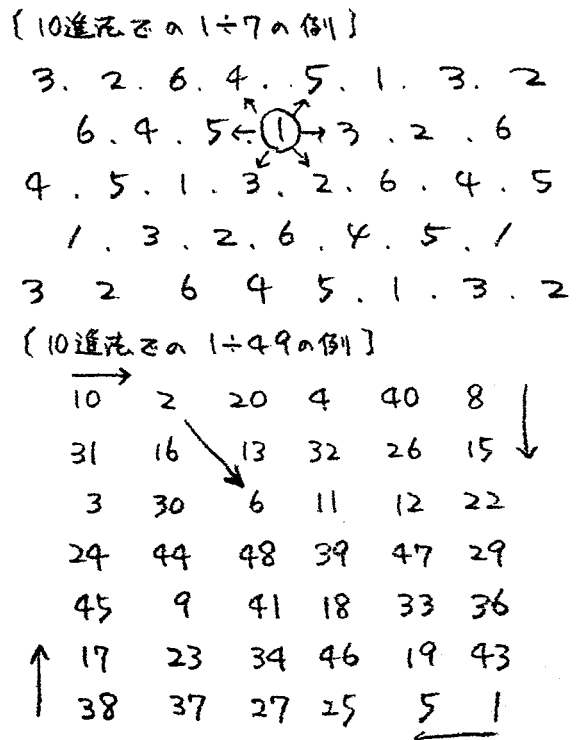 [10進法での1÷7の例]
3. 2. 6. 4. . 5. 1. 3. 2
6. 4. 5←①→3. 2. 6
4. 5. 1. 3. 2. 6. 4. 5
1. 3. 2. 6. 4. 5. 1
3 2 6 4 5. 1. 3. 2
[10進法での 1÷49の例]
10 2 20 4 40 8
31 16 13 32 26 15
3 30 6 11 12 22
24 44 48 39 47 29
45 9 41 18 33 36
17 23 34 46 19 43
38 37 27 25 5 1